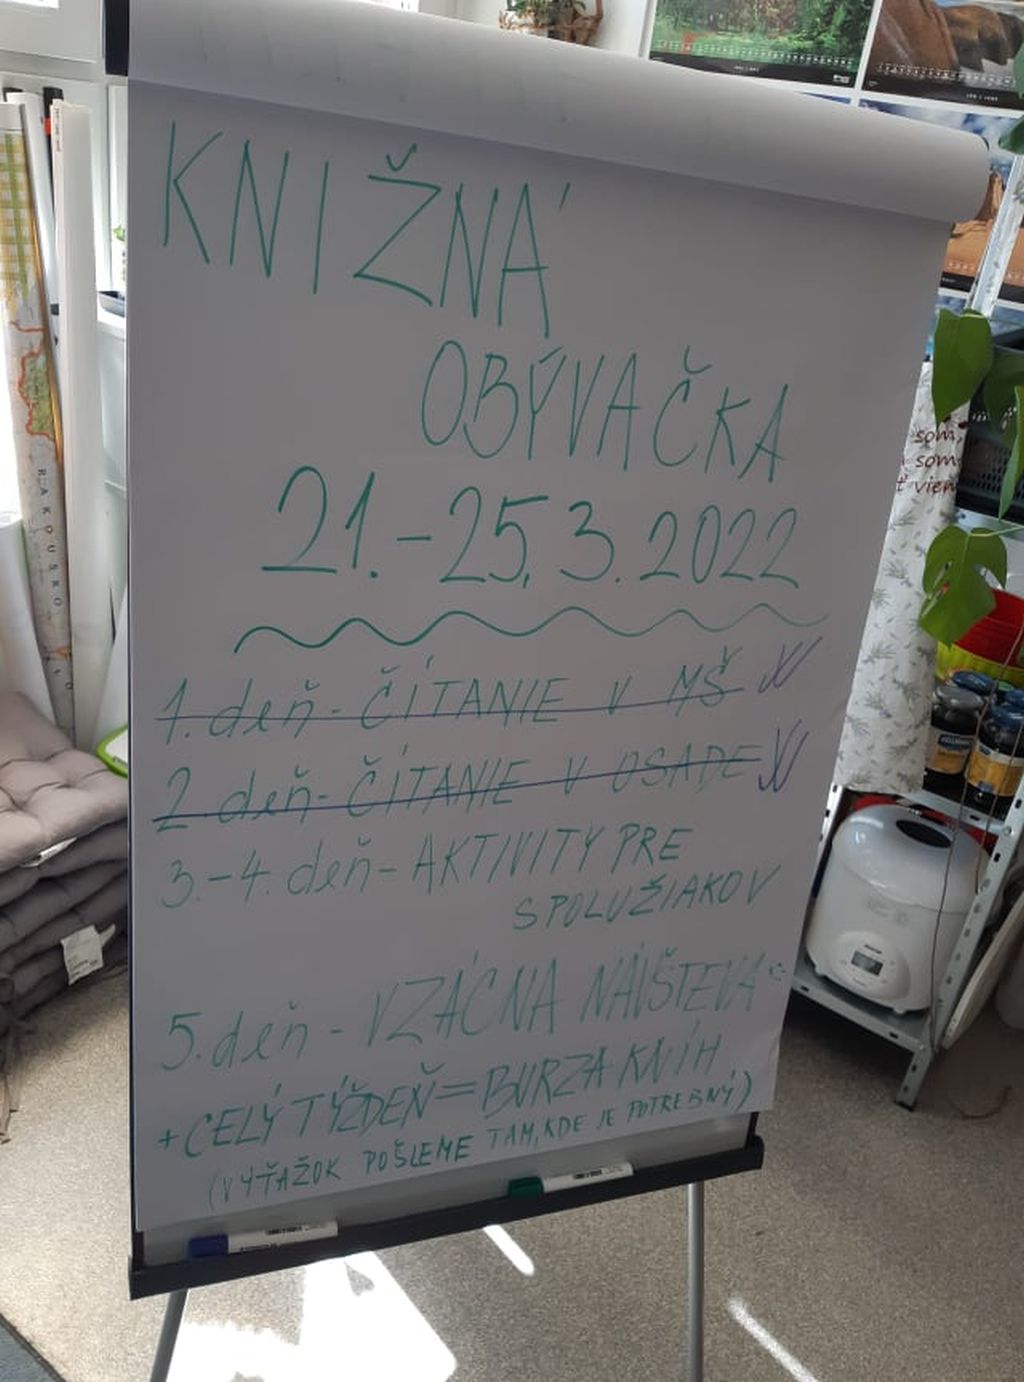 KNIŽNÁ
OBÝVAČKA
21.-25.3.2022
1. deň - ČÍTANIE V MŠ
2. deň - ČÍTANIE V OSADE
3.-4. deň - AKTIVITY PRE
SPOLUŽIAKOV
5. deň - VZÁCNA NÁVŠTEVA
+ CELÝ TÝŽDEŇ = BURZA KNÍH
(VÝŤAŽOK POŠLEME TAM, KDE JE POTREBNÝ)
RAKOUSKO
som,
som
ť vien